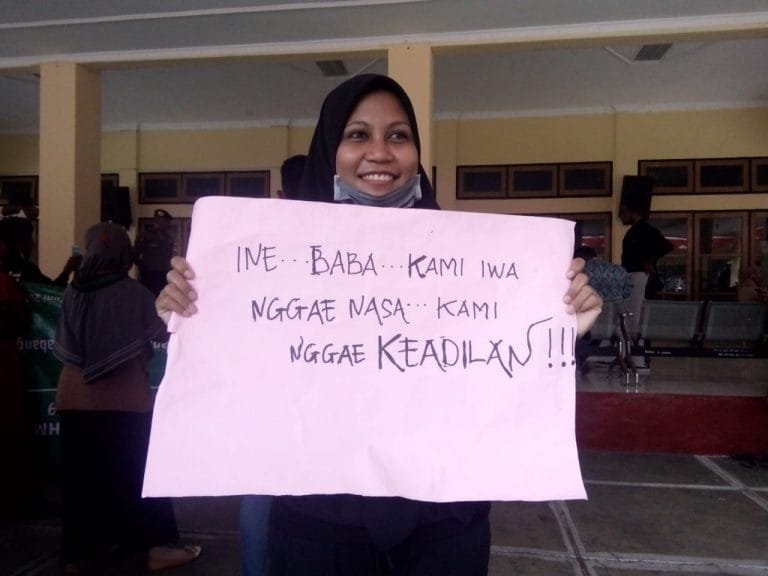 INE...BABA...KAMI IWA
NGGAE NASA... KAMI
NGGAE KEADILAN!!!
abang
HM